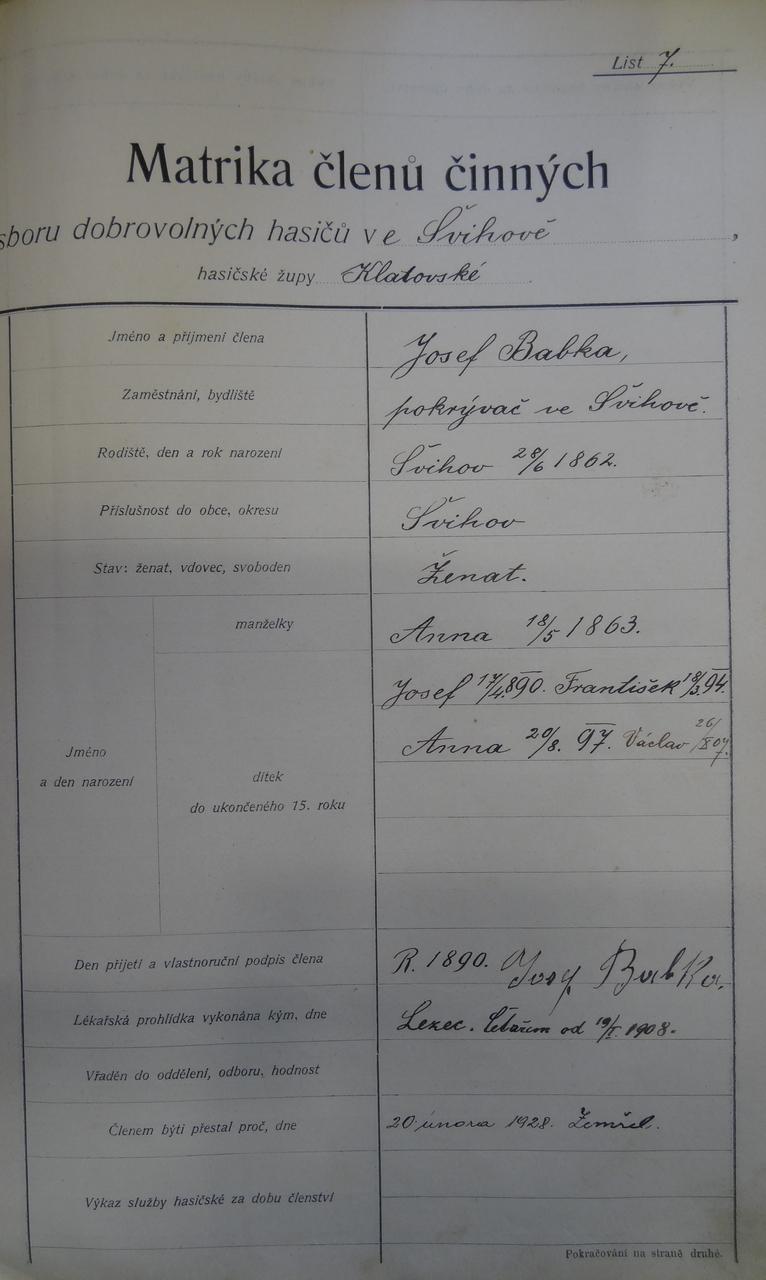 List 7.
Matrika členů činných
sboru dobrovolných hasičů ve Švihově,
hasičské župy Klatovské
Jméno a příjmení člena Josef Babka,
Zaměstnání, bydliště pokrývač ve Švihově.
Rodiště, den a rok narození Švihov 28/6 1862.
Příslušnost do obce, okresu Švihov
Stav: ženat, vdovec, svoboden Ženat.
manželky Anna 18/5 1863.
Josef 17/4.890. František 18/3.94.
Anna 20/8. 97. Václav 26/X 07.
Jméno
a den narození
dítek
do ukončeného 15. roku
Den přijetí a vlastnoruční podpis člena R. 1890. Josef Babka.
Lékařská prohlídka vykonána kým, dne Lezec. od 19/I. 1908.
Vřaděn do oddělení, odboru, hodnost
Členem býti přestal proč, dne 20 února 1928. Zemřel.
Výkaz služby hasičské za dobu členství
Pokračování na straně druhé.